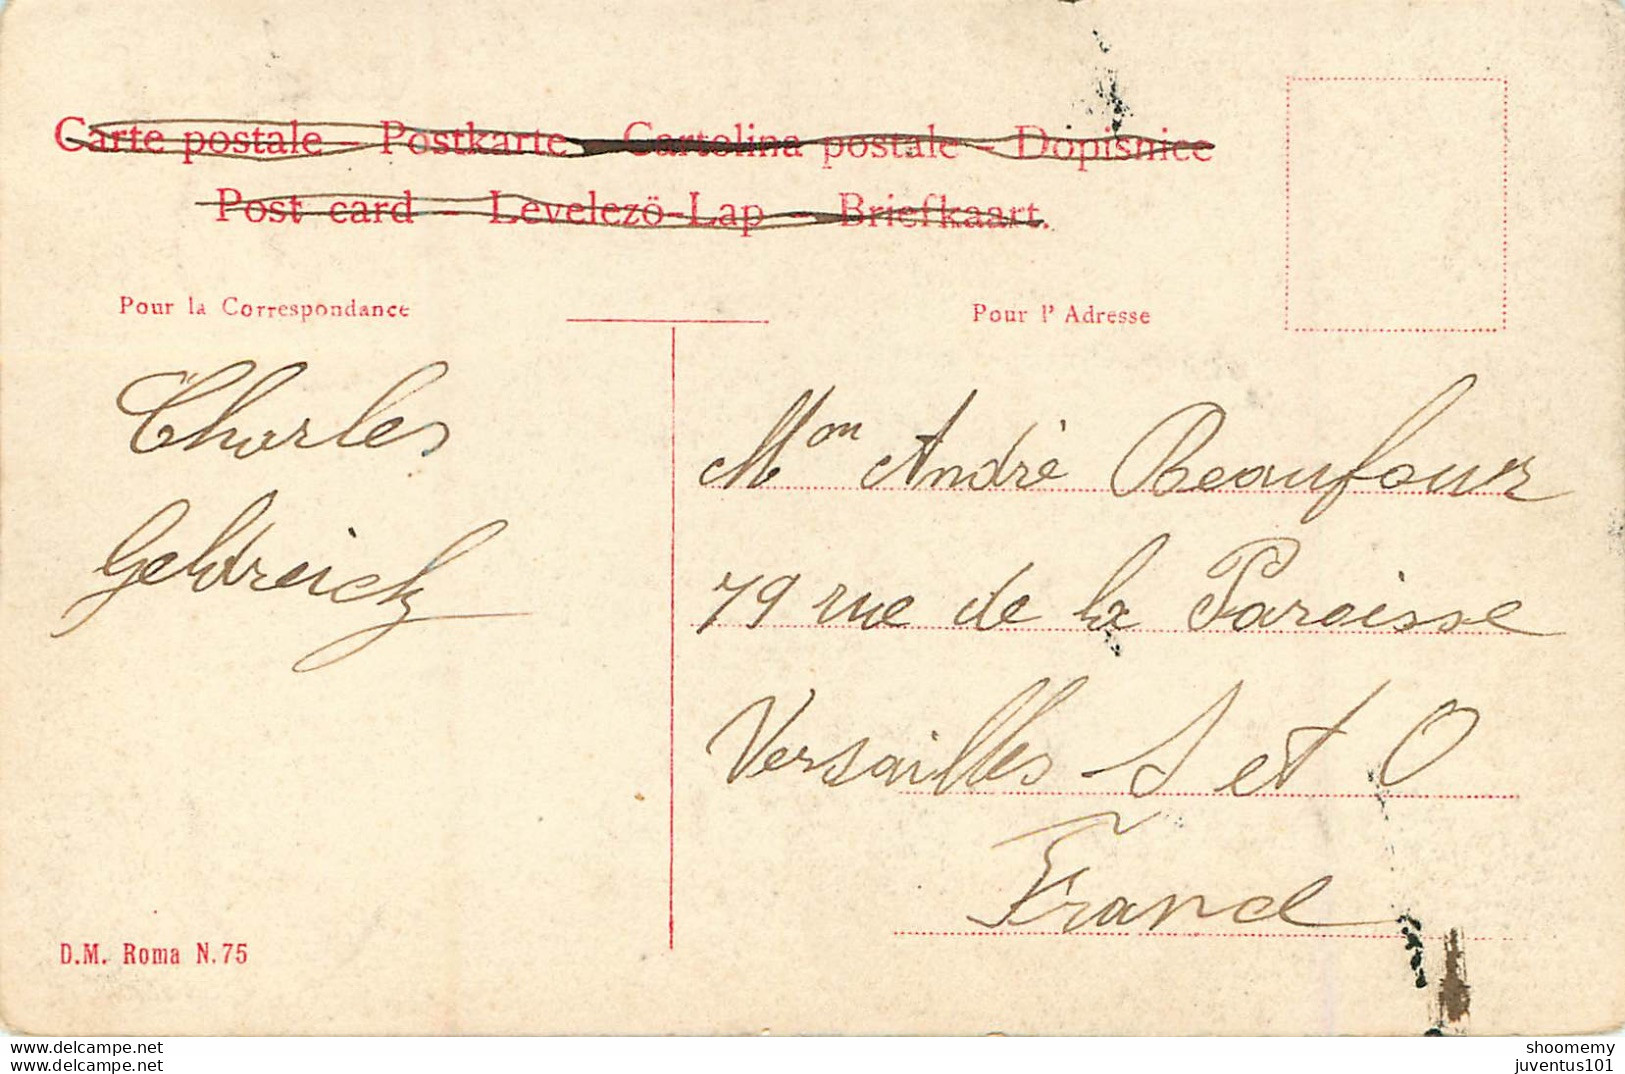 Carte postale – Postkarte – Cartolina postale – Dopisnice
Post card – Levelezö-Lap – Briefkaart.
Pour la Correspondance
Pour l' Adresse
Charles
Geldreich
Mon André Beaufour
79 rue de la Paroisse
Versailles S et O
France
D.M. Roma N. 75
All items delcame.net
http://www.delcampe.net
shoomemy
juventus101